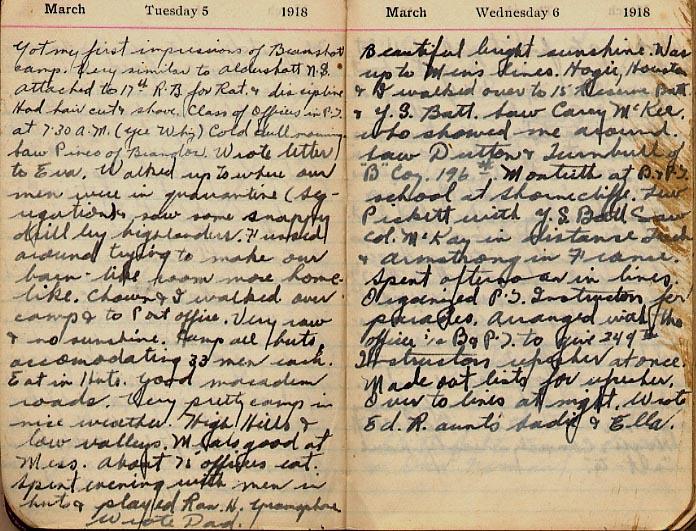 March Tuesday 5 1918
Got my first impressions of Bramshott
camp. Very similar to Aldershott N.S.
attached to 17th R.B for Rat. & discipline
Had hair cut & shave. Class of Officers in P.T.
at 7:30 A.M. (Gee Whiz) Cold dull morning
Saw Pineo of Brandon. Wrote letter
to Eva. Walked up to where our
men were in quarantine (seg-
regation) & saw some snappy
drill by highlanders. Fussed
around trying to make our
barn-like room more home-
like. Chown & I walked over
camp & to Post office. Very raw
& no sunshine. Camp all huts
accomodating 33 men each.
Eat in Huts. Good macadem
roads. Very pretty camp in
nice weather. High Hills &
low valleys. Meals good at
Mess. About 75 officers eat.
Spent evening with men in
huts & played Ron. H. Gramophone
Wrote Dad.
March Wednesday 6 1918
Beautiful bright sunshine. Was
up to Men's lines. Hogie, Houston
& I walked over to 15 Reserve Batt
& Y.S. Batt. Saw Carey McKee,
who showed me around.
Saw Dutton & Turnbull of
B Coy. 196th. Monteith at B & P.T.
school at Shorncliffe. Saw
Pickett with Y.S Batt Saw
Col. McKay in distance
& Armstrong in France.
Spent afternoon in lines.
Organized P.T. Instructors for
parades. Arranged with the
officer i/c B & P.T. to give 249th
Instructors refresher at once.
Made out lists for refresher.
Over to lines at night. Wrote
Ed. R. aunts Sadie & Ella.